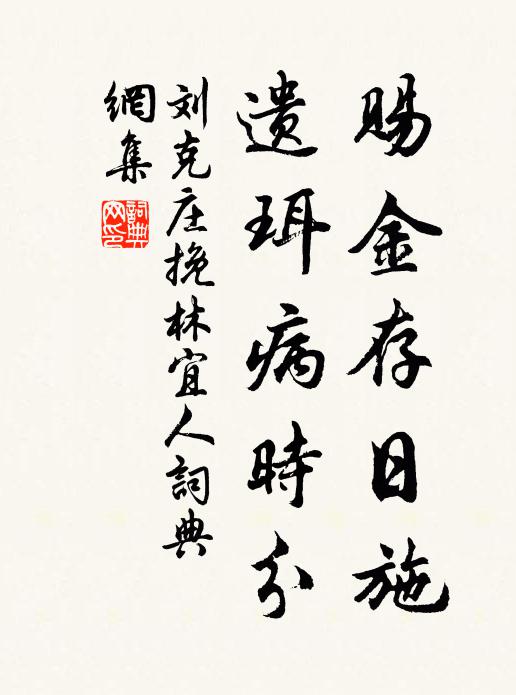 賜金存日施
遺珥病時分
刘克庄挽林宜人詞典
網集
詞典
网印